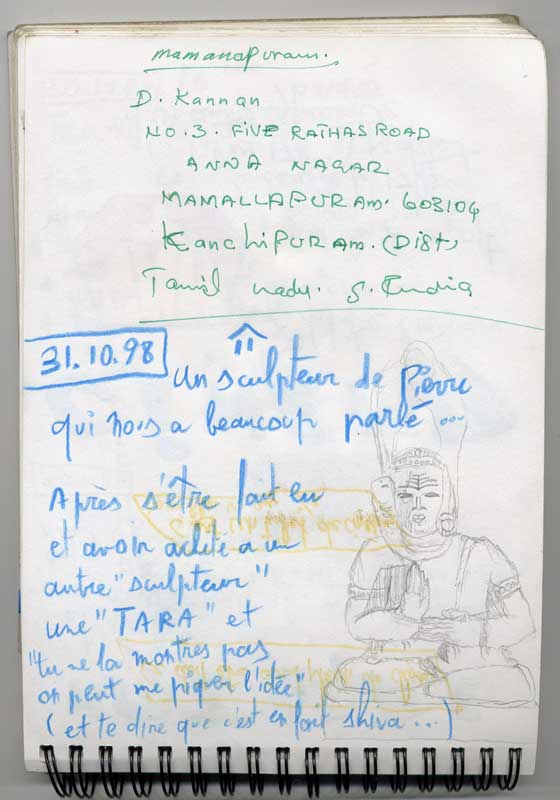 mamanapuram.
D. Kannan
NO. 3. FIVE RATHAS ROAD
ANNA NAGAR
MAMALLAPURAM. 603104
KanchiPURam. (Dist,
Tamil nadu. S. India
31.10.98
Un sculpteur de Pierre
qui nous a beaucoup parlé...
Après s'être fait eu
et avoir acheté a un
autre "sculpteur"
une "TARA" et
"tu ne la montres pas
on peut me piquer l'idée"
(et te dire que c'est en fait shiva...)